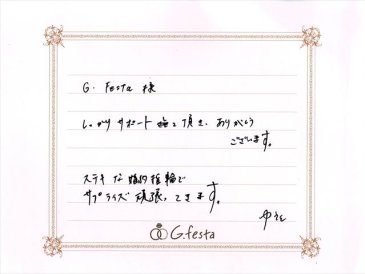 G. Festa 様
しっかりサポート施して頂き、ありがとう
ございます。
ステキな婚約指輪で
サプライズ頑張ってきます。
G.festa